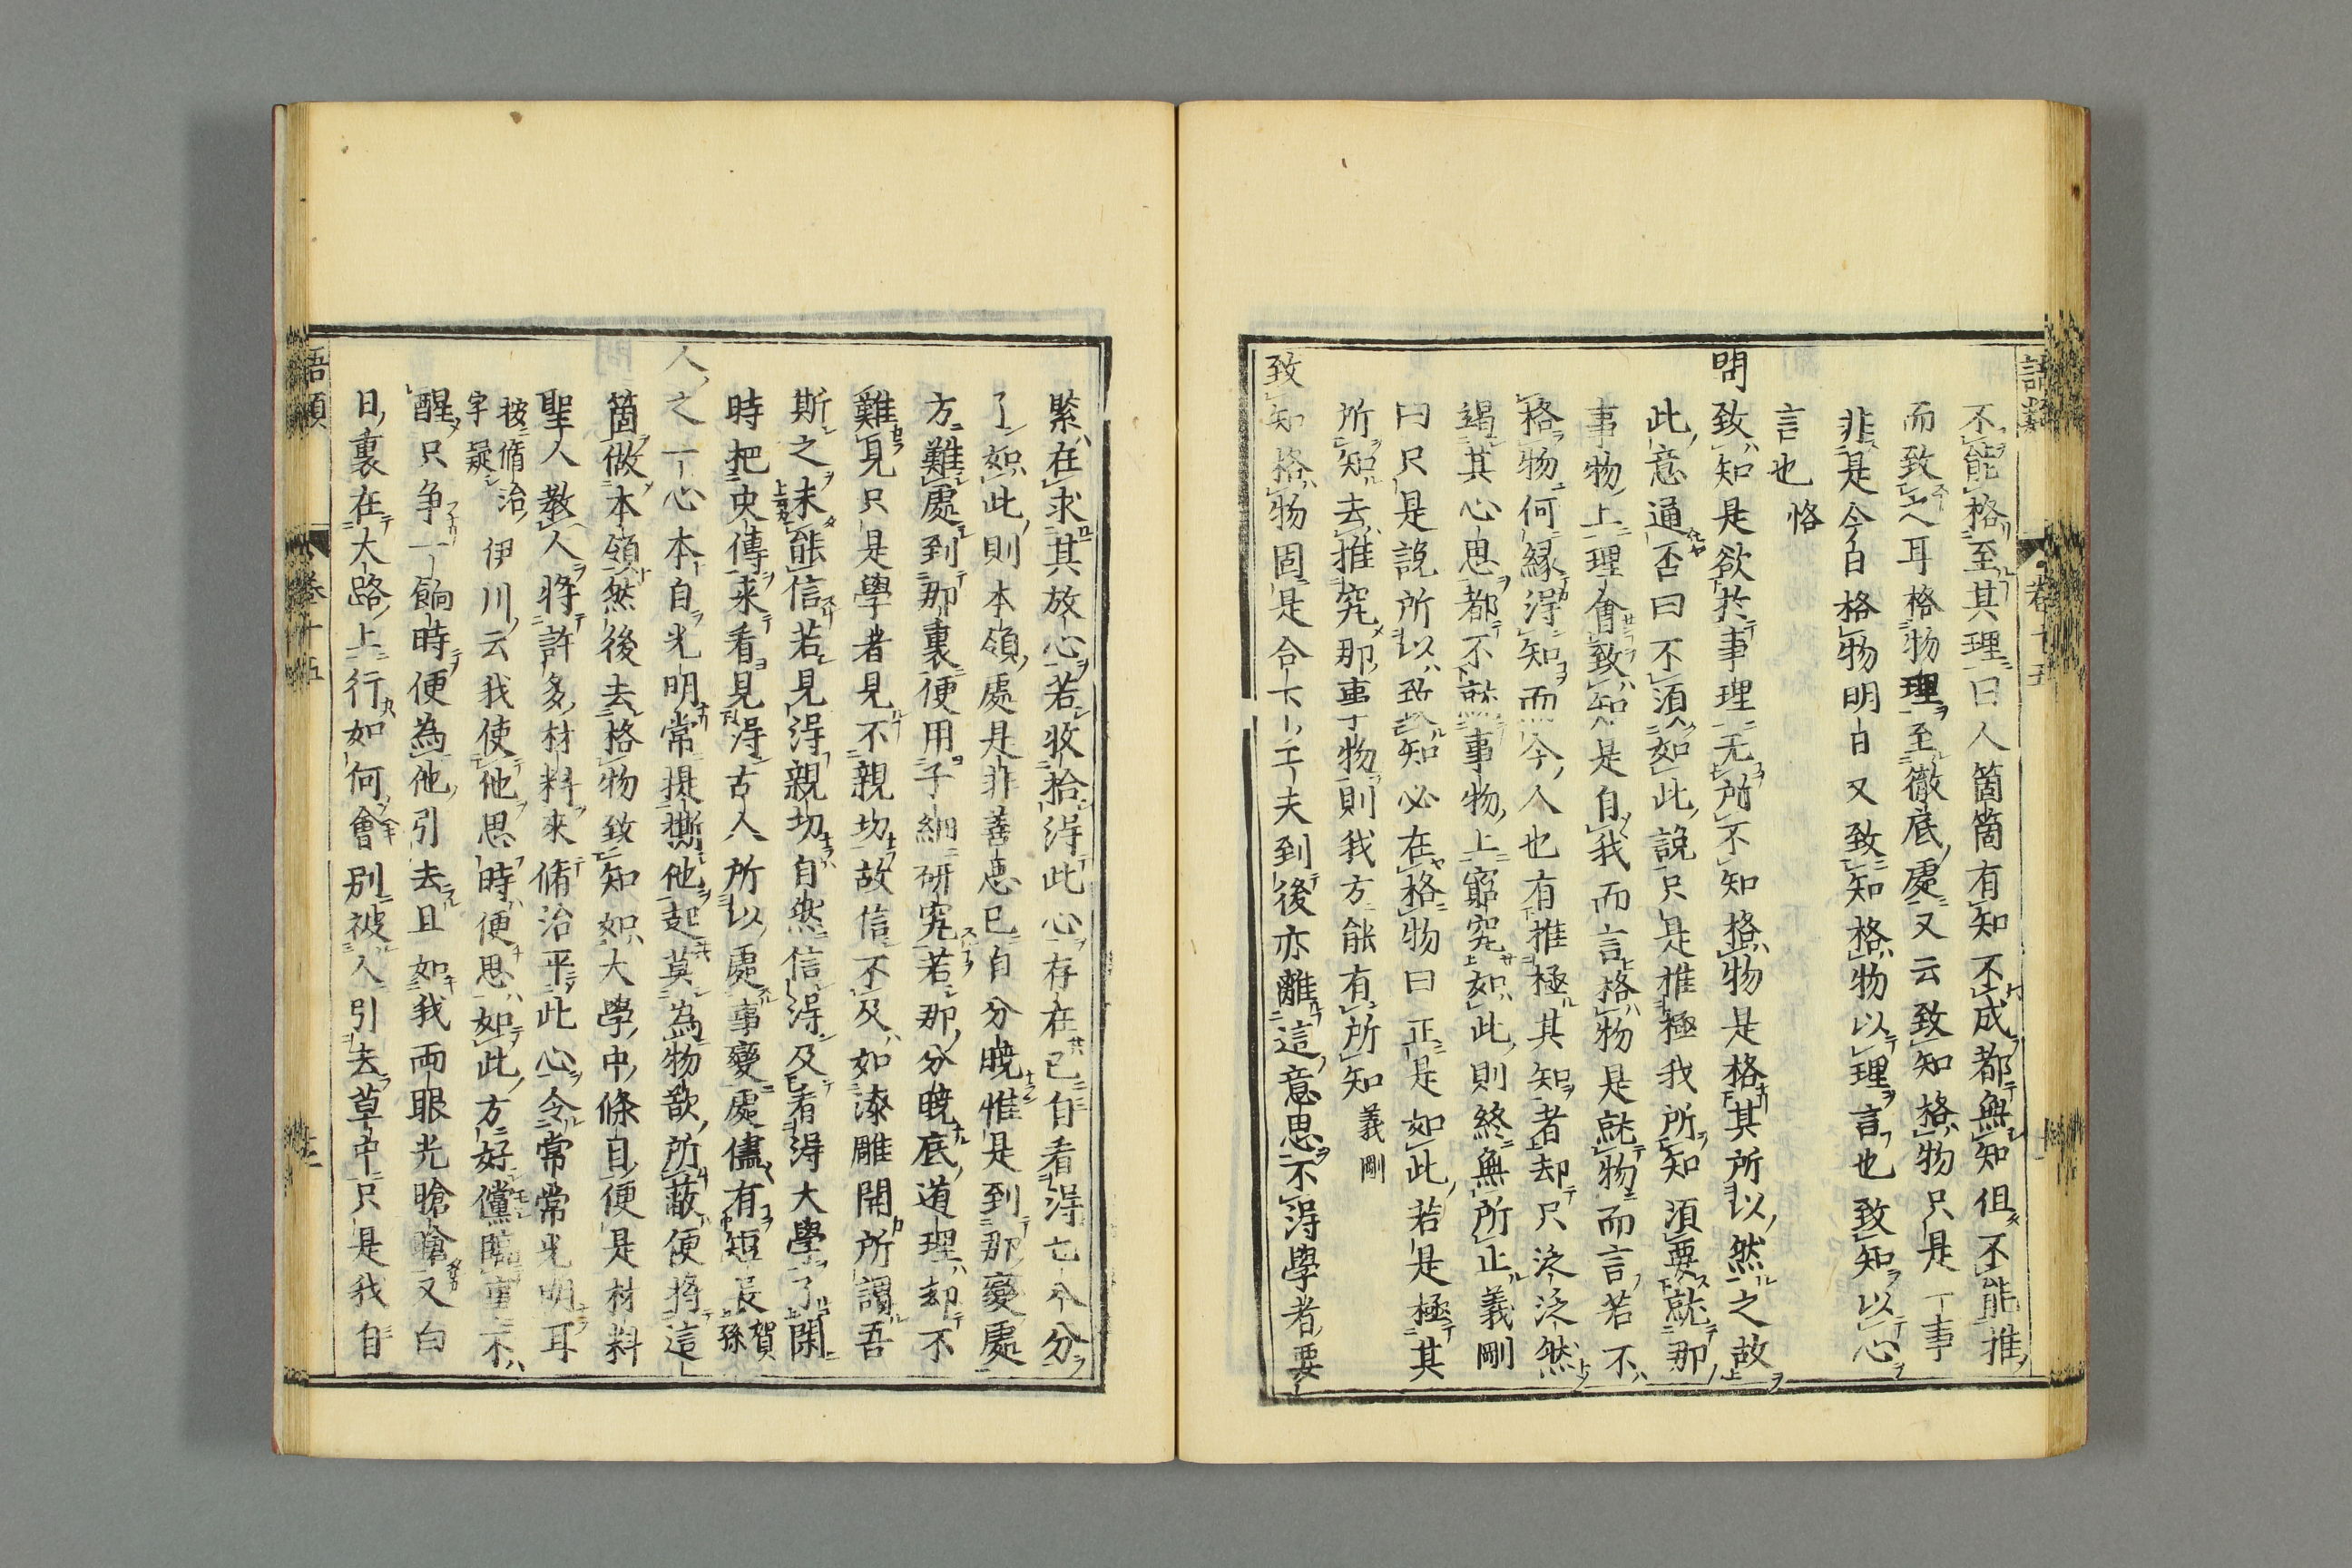 語類 卷十五
不能格至其理曰人箇箇有知不成都無知但不能推
而致之耳格物理至徹底處又云致知格物只是一事
非是今日格物明日又致知格物以理言也致知以心
言也 恪
問致知是欲於事理无所不知格物是格其所以然之故
此意通否曰不須如此說只是推極我所知須要就那
事物上理會致知是自我而言格物是就物而言若不
格物何縁得知而今人也有推極其知者却只泛泛然
竭其心思都不就事物上窮究如此則終無所止義剛
曰只是說所以致知必在格物曰正是如此若是極其
所知去推究那事物則我方能有所知 義剛
致知格物固是合下工夫到後亦離這意思不得學者要
緊在求其放心若收拾得此心存在已自看得七八分
了如此則本領處是非善惡已自分曉惟是到那變處
方難處到那裏便用子細研究若那分曉底道理却不
難見只是學者見不親切故信不及如漆雕開所謂吾
斯之未能信若見得親切自然信得及看得大學了閑
時把史傳來看見得古人所以處事變處儘有短長 賀孫
人之一心本自光明常提撕他起莫為物欲所蔽便將這
箇做本領然後去格物致知如大學中條自便是材料
聖人教人將許多材料來脩治平此心令常常光明耳
按脩治字疑 伊川云我使他思時便思如此方好儻臨事不
醒只争一餉時便為他引去且如我兩眼光𪾢𪾢又白
日裏在大路上行如何會別被人引去草中只是我自
語類 卷十五